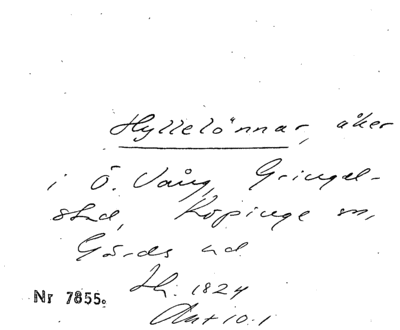 Hyllelönnar, åker
i Ö. Vång, Gringel-
stad, Köpinge sn,
Gärds hd
Sk. 1824
Akt 10.1
Nr 7855.